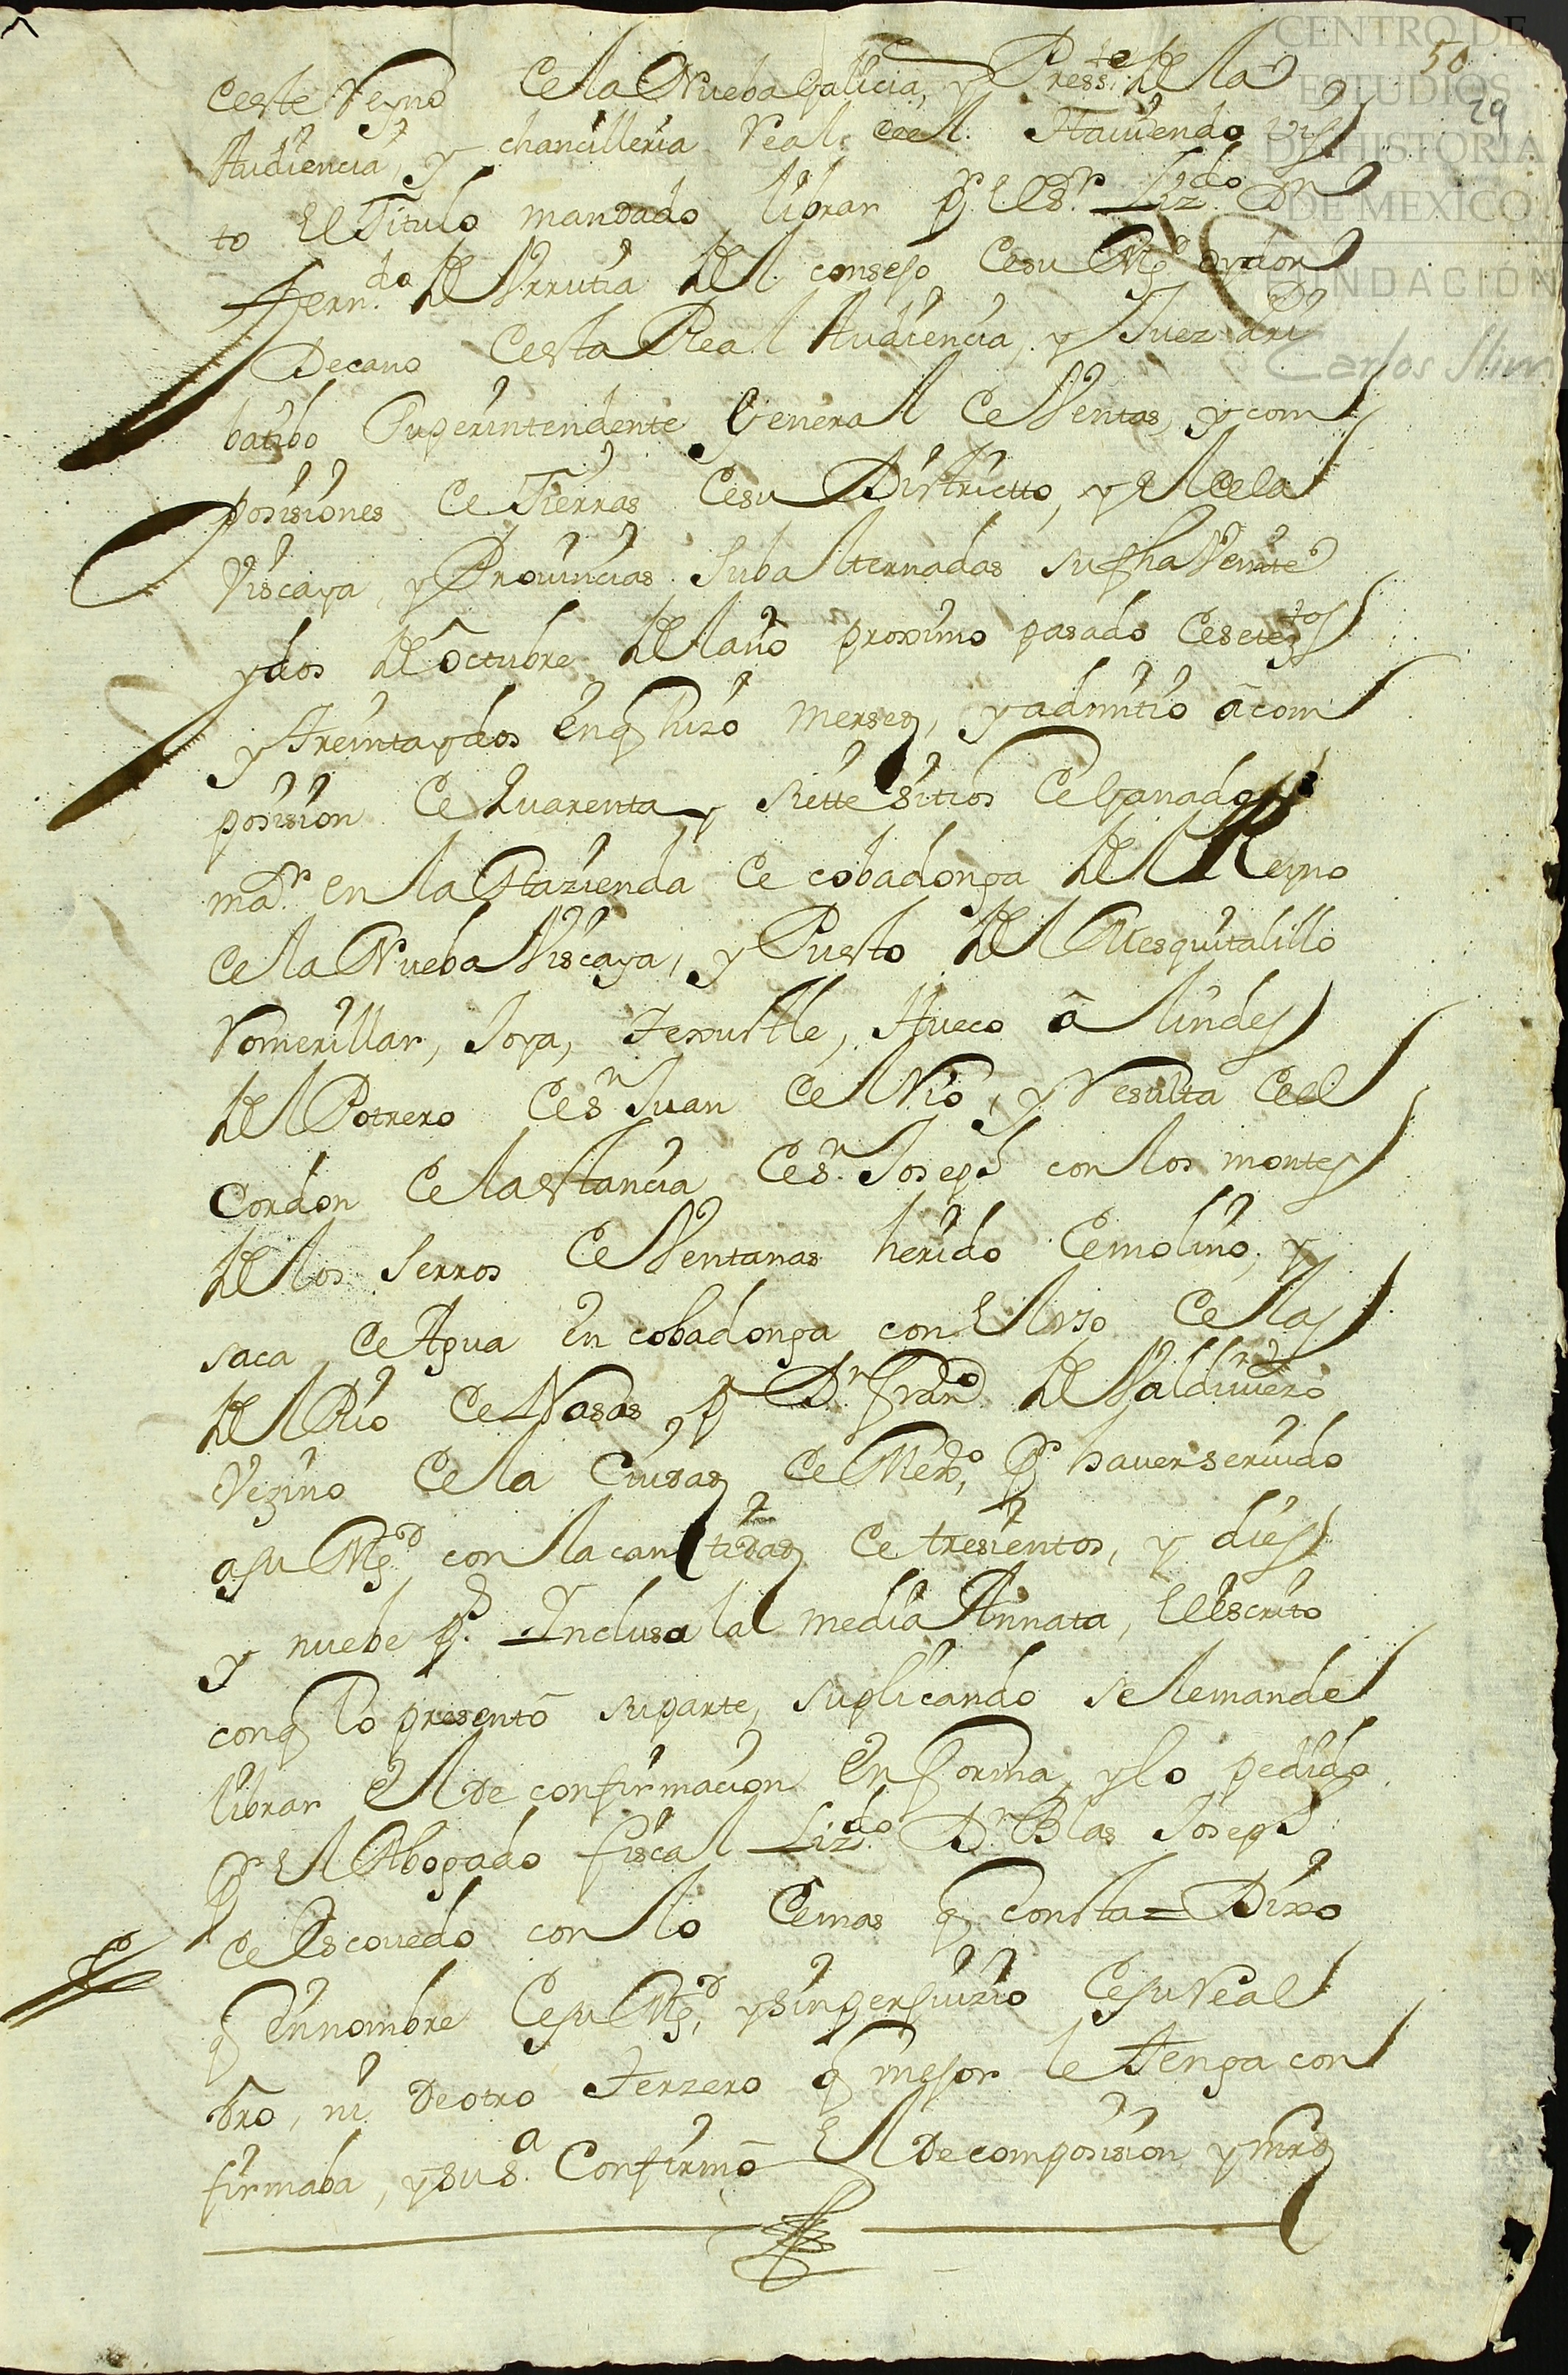 CENTRO DE
ESTUDIOS
DE HISTORIA
DE MEXICO
FUNDACIÓN
Carlos Slim
50
29
deste Reyno de la Nueba Galicia, y Press.te de la
Audiencia, y chancilleria Real de el. Haviendo vis
to El Titulo mandado librar pr. el Sr. Lizdo. Dn.
Fernd.o de Urrutia del consejo de su Mgd. oydor
Decano desta Real Audiencia, y Juez Pri
batibo Superintendente General de Ventas, y com
posisiones de Tierras de su Districtto, y el de la
Viscaya, y Provincias Subalternadas su fha Veinte
y dos de octubre del año proximo pasado de setez.tos
y treinta y dos en q hizo mersed, y admitio â com
posision de quarenta y siette sitios de Ganado
maor. en la Hazienda de cobadonga del Reyno
de la Nueba Viscaya, y Puesto del Mesquitalillo
Romerillar, Joya, Texustle, Hueco â lindes
del Potrero de Sn. Juan del Rio, y Resulta de el
Cordon de la estancia de Sn. Joseph con los montes
de los Serros de Ventanas herido de molino, y
saca de Agua en cobadonga con el uso de las
del Rio de Nasas, pr. Dn. Franco. de Valdivieso
Vezino de la Ciudad de Mexco, Pr. haver servido
a su Mgd. con la cantidad de tresientos, y dies
y nuebe ps. Inclusa la media Annata, el escrito
con q lo presentô su parte, suplicando se le mande
librar el de confirmacion en forma, y lo pedido
Pr. el Abogado fiscal Lizdo. Dn. Blas Joseph
de Escovedo con lo demas q consta = Dixo
q en nombre de su Mgd, y sin perjuizio de su Real
dro, ni de otro terzero q mejor le tenga con
firmaba, y su Sa. Confirmô el de composision y mrd